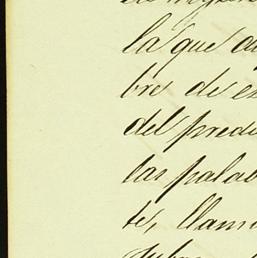 la que a
bres de es
del predi
las palab
te, llam